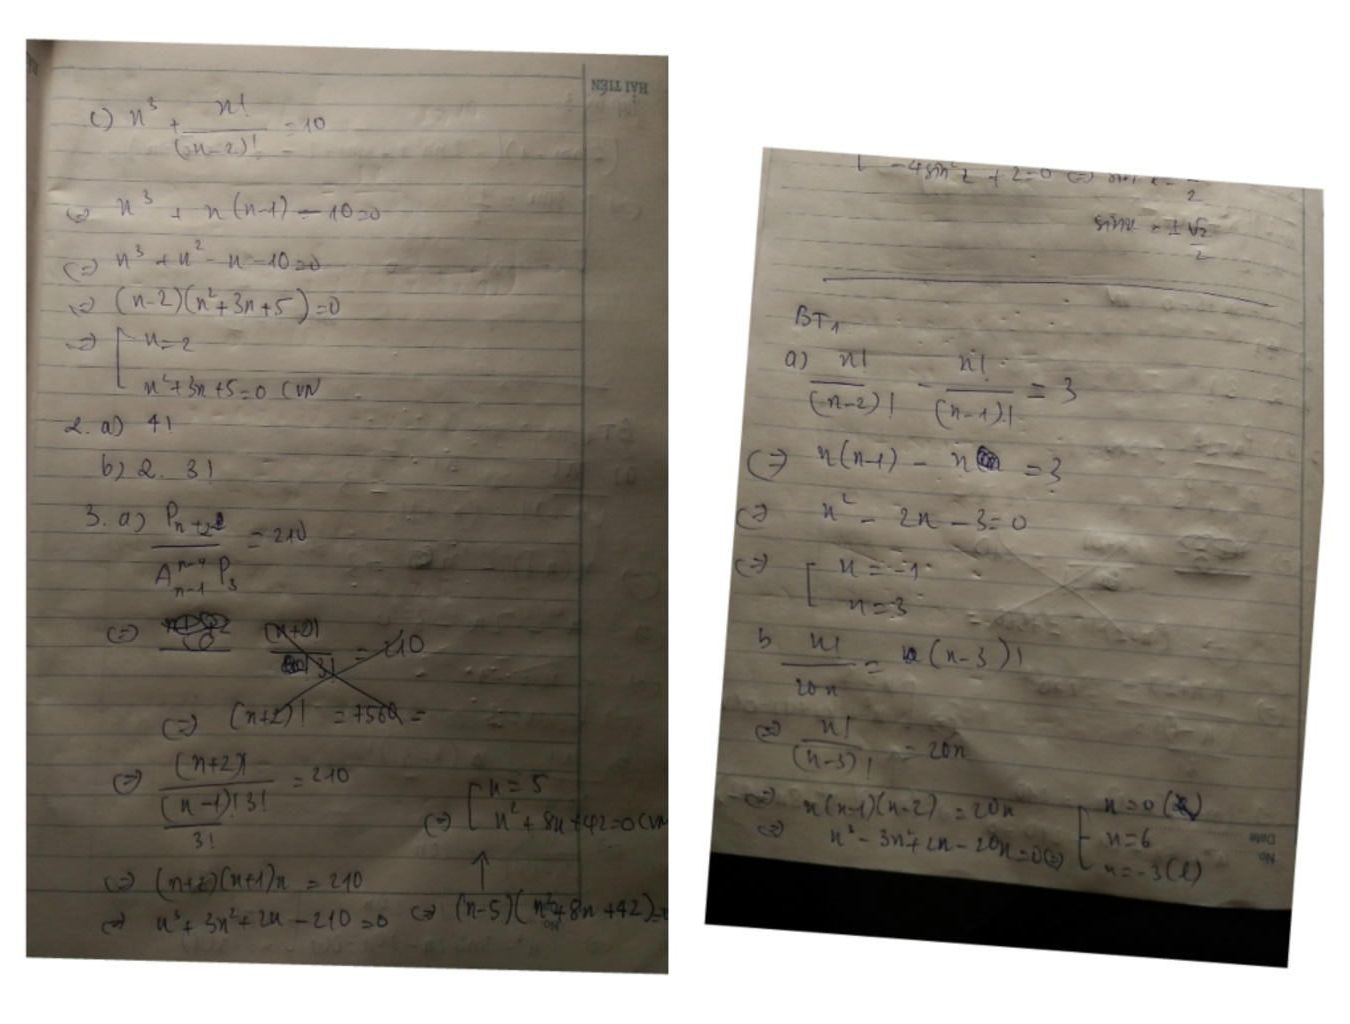 HẢI TIẾN
c) n³ + n!/(n-2)! = 10
<=> n³ + n(n-1) - 10 = 0
<=> n³ + n² - n - 10 = 0
<=> (n-2)(n²+3n+5) = 0
<=> [ n = 2
n²+3n+5=0 (VN
2. a) 4!
b) 2. 3!
3. a) Pn+2 / (A^{n-4}_{n-1} P3) = 210
<=> (n+2)! / 3! = 210
<=> (n+2)! = 7560 =
<=> (n+2)! / ((n-1)! 3! / 3!) = 210
<=> (n+2)(n+1)n = 210
<=> n³ + 3n² + 2n - 210 = 0
<=> (n-5)(n²+8n+42)=
↑
<=> [ n = 5
n² + 8n + 42 = 0 (VN
-4sin²x + 2 = 0 <=>
2
sinx = ±√2/2
BT1
a) n!/(n-2)! - n!/(n-1)! = 3
<=> n(n-1) - n = 3
<=> n² - 2n - 3 = 0
<=> [ n = -1
n = 3
b n!/20n = (n-3)!
<=> n!/(n-3)! = 20n
<=> n(n-1)(n-2) = 20n
<=> n³ - 3n² + 2n - 20n = 0 <=>
[ n = 0
n = 6
n = -3 (l)
No
Date